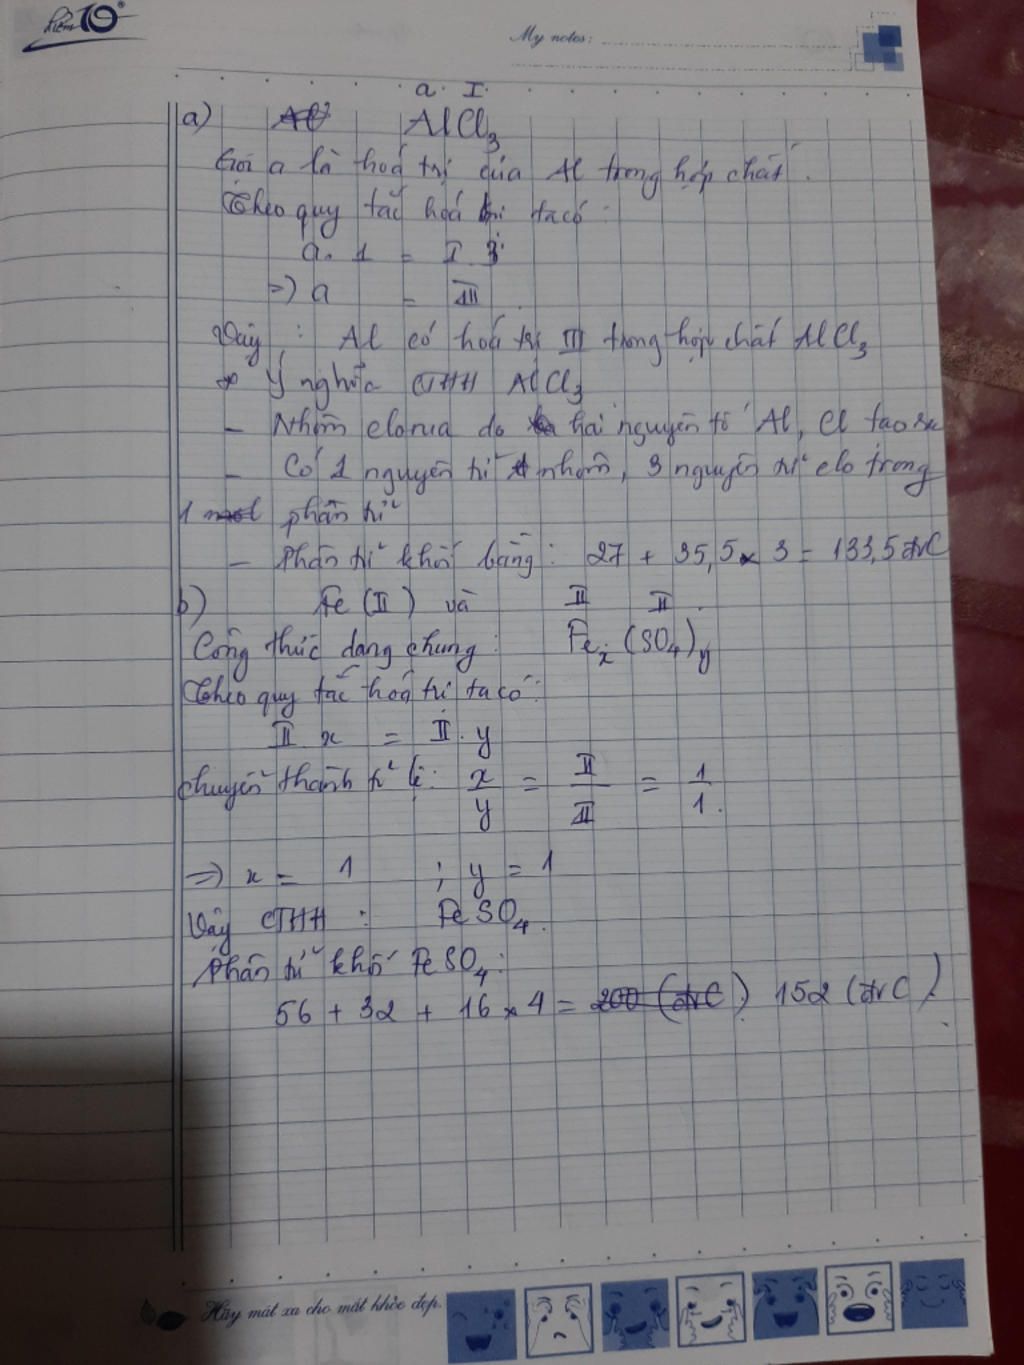 Điểm 10
My notes:
a I
a) AlCl₃
Gọi a là hoá trị của Al trong hợp chất.
Theo quy tắc hoá trị ta có:
a. 1 = I. 3
=> a = III
Vậy: Al có hoá trị III trong hợp chất AlCl₃
Ý nghĩa CTHH AlCl₃
- Nhôm clorua do hai nguyên tố Al, Cl tạo ra
- Có 1 nguyên tử nhôm, 3 nguyên tử clo trong
1 phân tử
- Phân tử khối bằng: 27 + 35,5 x 3 = 133,5 đvC
b) Fe (II) và II II
Công thức dạng chung: Feₓ(SO₄)y
Theo quy tắc hoá trị ta có:
II x = II. y
Chuyển thành tỉ lệ: x/y = II/II = 1/1.
=> x = 1 ; y = 1
Vậy CTHH: FeSO₄.
Phân tử khối FeSO₄:
56 + 32 + 16 x 4 = 200 (đvC) 152 (đvC)
Hãy mát xa cho mắt khỏe đẹp.